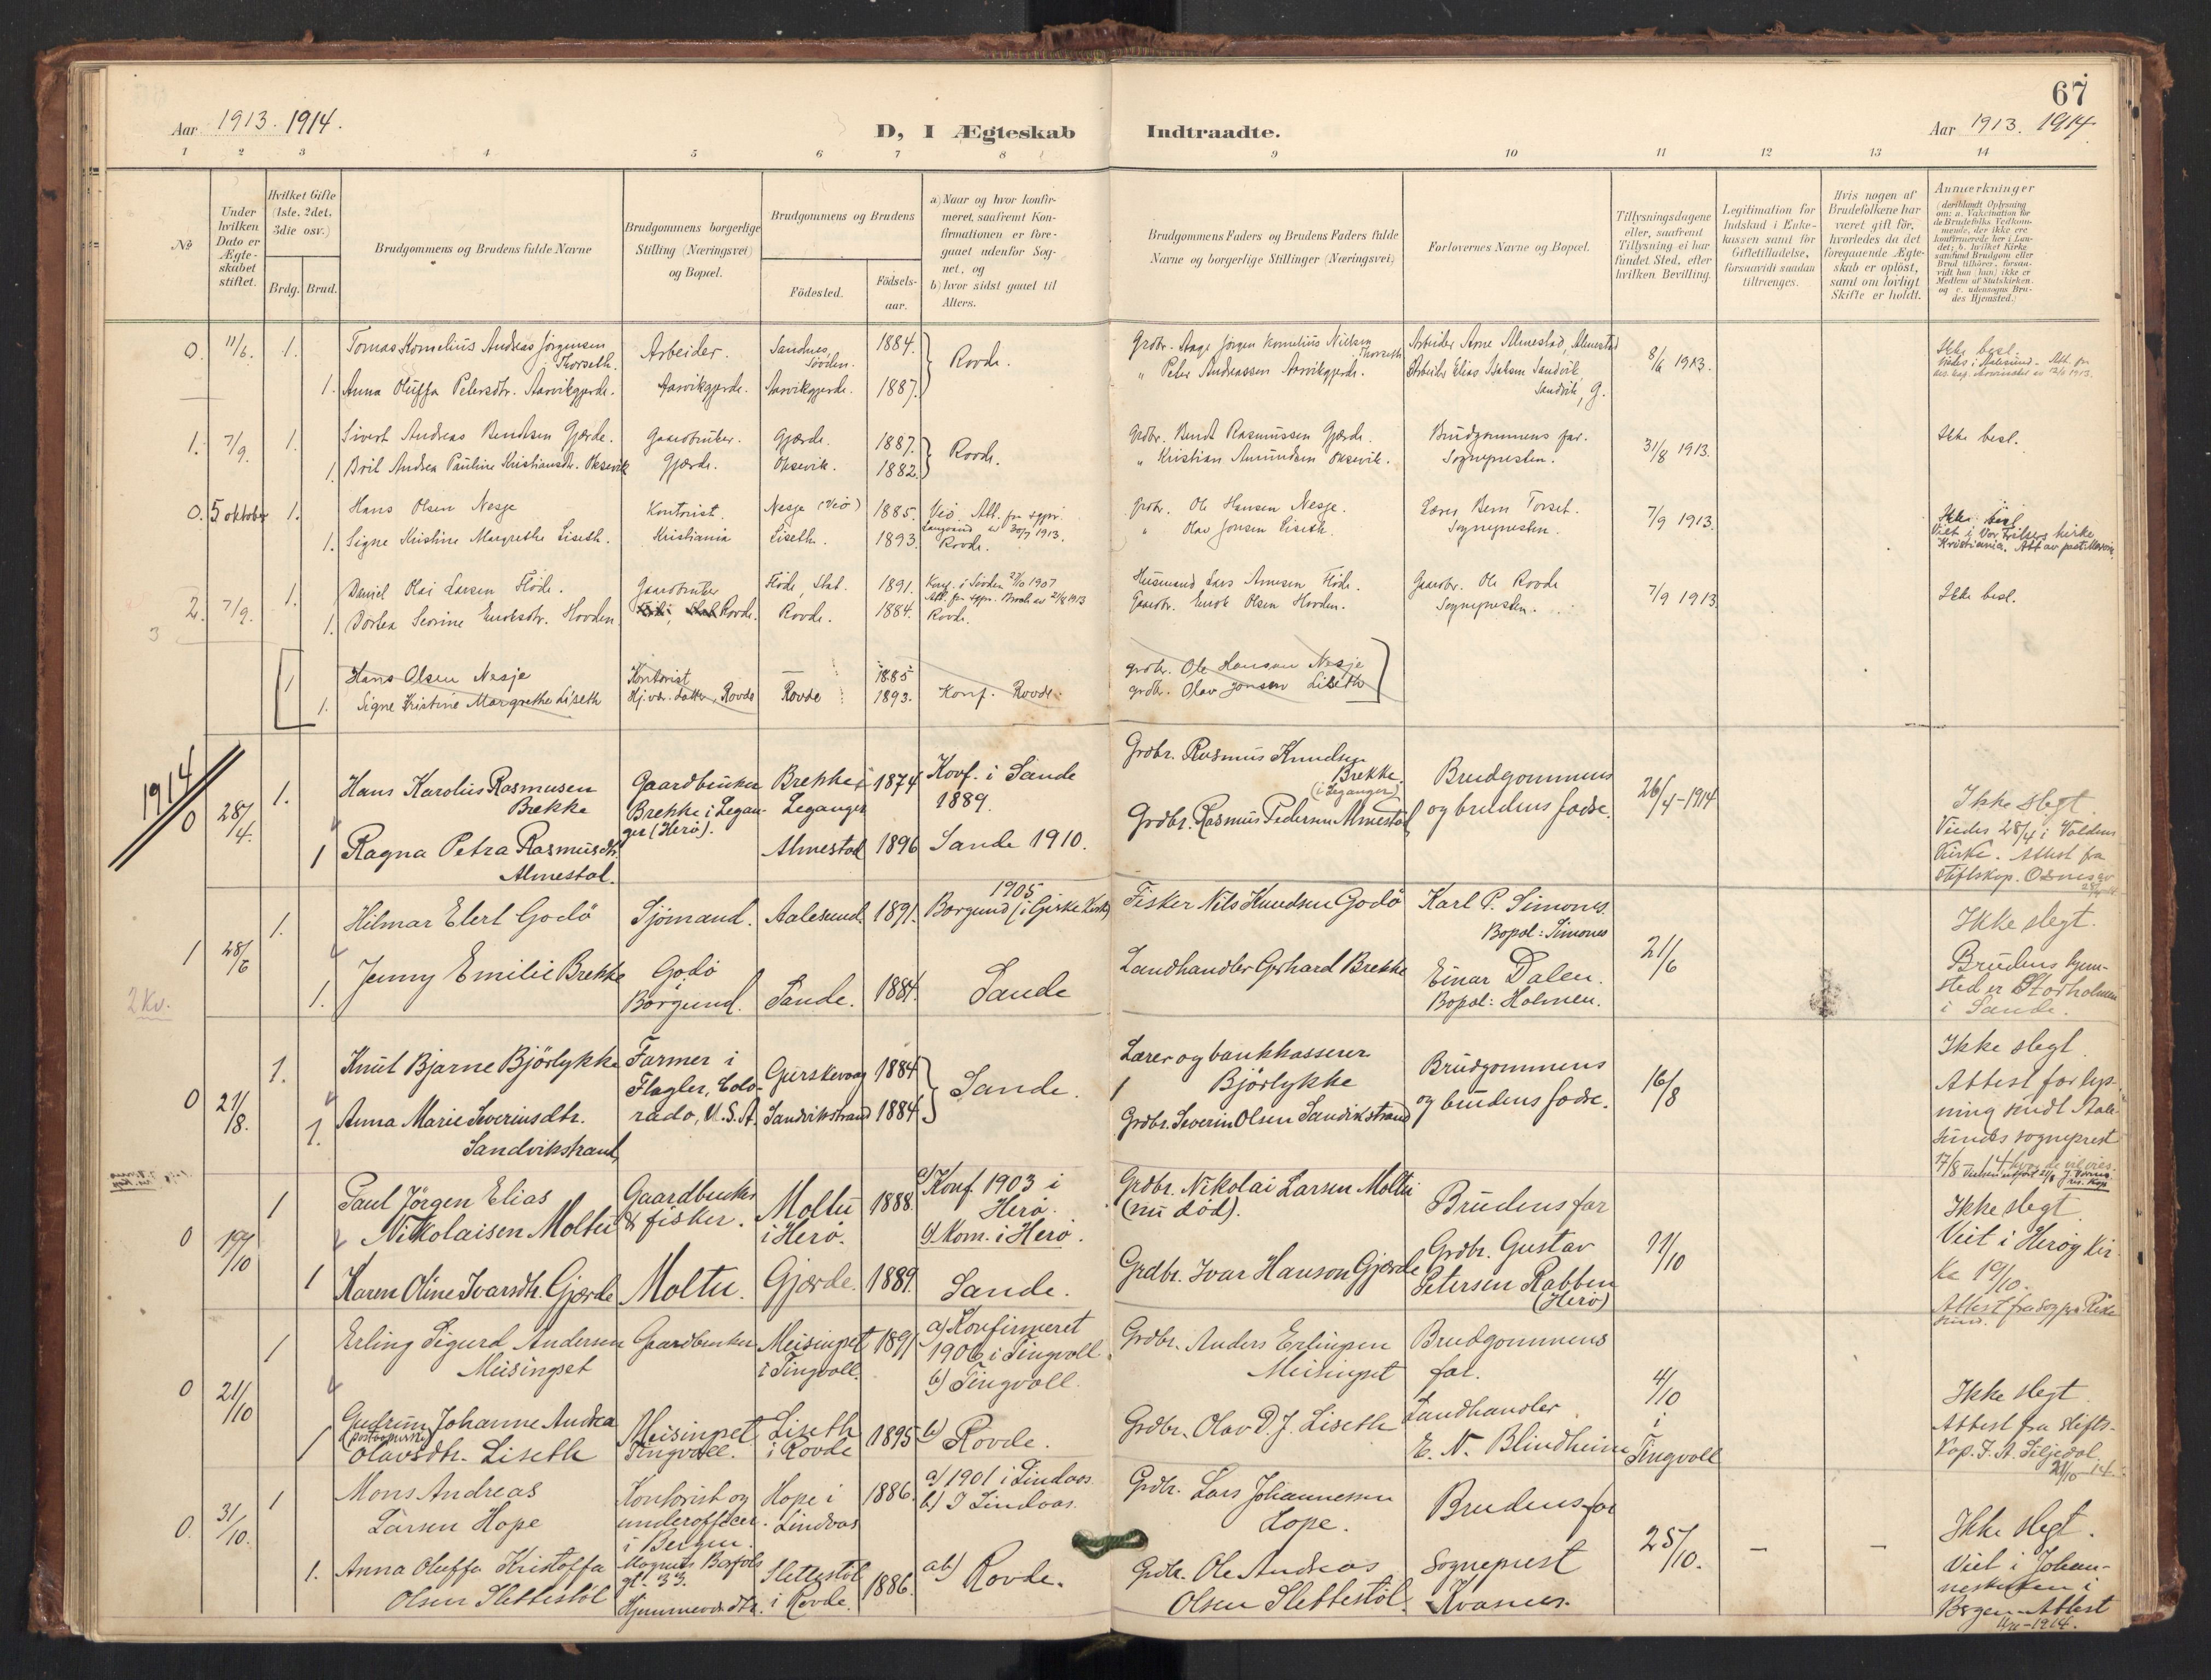 67
Aar 1913. 1914.
D, I Ægteskab Indtraadte.
Aar 1913. 1914.
1 2 3 4 5 6 7 8 9 10 11 12 13 14
No
Under hvilken Dato er Ægteskabet stiftet.
Hvilket Gifte (1ste, 2det, 3die osv.)
Brdg. Brud.
Brudgommens og Brudens fulde Navne
Brudgommens borgerlige Stilling (Næringsvei) og Bopæl.
Brudgommens og Brudens
Födested.
Födselsaar.
a) Naar og hvor konfirmeret, saafremt Konfirmationen er foregaaet udenfor Sognet, og
b) hvor sidst gaaet til Alters.
Brudgommens Faders og Brudens Faders fulde Navne og borgerlige Stillinger (Næringsvei)
Forlovernes Navne og Bopæl.
Tillysningsdagene eller, saafremt Tillysning ei har fundet Sted, efter hvilken Bevilling.
Legitimation for Indskud i Enkekassen samt for Giftetilladelse, forsaavidt saadan tiltrænges.
Hvis nogen af Brudefolkene har været gift før, hvorledes da det foregaaende Ægteskab er oplöst, samt om lovligt Skifte er holdt.
Anmærkninger (deriblandt Oplysning om: a. Vakcination for de Brudefolks Vedkommende, der ikke ere konfirmerede her i Landet; b. hvilket Kirkesamfund Brudgom eller Brud tilhörer, forsaavidt han (hun) ikke er Medlem af Statskirken, og c. udensogns Brudes Hjemsted.)
0. 11/6. 1. Tomas Kornelius Andreas Jörgensen Thorseth. Arbeider. Sandnes, Sövden. 1884. Rovde. Grdbr. Aage Jörgen Kornelius Nielsen Thorseth Arbeider Arne Almestad, Almestad 8/6 1913. Ikke besl.
1. Anna Oluffa Petersdtr. Aarvikgjerde. Aarvikgjerde. Aarvikgjerde. 1887. " Peter Andreassen Aarvikgjerde. Arbeider Elias Sandvik Sandvik, G.
1. 7/9. 1. Sivert Andreas Bendtsen Gjærde. Gaardbruker. Gjærde. 1887. Rovde. Grdbr. Bendt Rasmussen Gjærde. Brudgommens far. 31/8 1913. Ikke besl.
1. Brit Andrea Pauline Kristiansdtr. Oksevik Gjærde. Oksevik. 1882. " Kristian Amundsen Oksevik. Sognepresten.
0. 5 oktober 1. Hans Olsen Nesje Kontorist. Nesje (Veö) 1885. Veö. Att. fra sgpr. Grdbr. Ole Hansen Nesje. Lærer Bern Torset. 7/9 1913. Ikke besl.
1. Signe Kristine Margrethe Liseth. Kristiania Liseth. 1893. Rovde. " Olav Jonsen Liseth. Sognepresten. Viet i Vor Frelsers kirke Kristiania.
2. 7/9. 1. Daniel Olai Larsen Flöde. Gaardbruker Flöde, Stat. 1891. Konf. i Sövden 27/10 1907 Husmand Lars Arnesen Flöde. Gaardbr. Ole Rovde 7/9 1913 Ikke besl.
1. Dortea Severine Enoksdtr. Hovden. Rovde. Rovde. 1884. Rovde. Gaardbr. Enok Olsen Hovden. Sognepresten.
3
1 Hans Olsen Nesje Kontorist — 1885 grdbr. Ole Hansen Nesje
1. Signe Kristine Margrethe Liseth Hj.vær. datter, Rovde Rovde 1893. Konf. Rovde. grdbr. Olav Jonsen Liseth
1914
0 28/4. 1. Hans Karolius Rasmusen Brekke Gaardbruker Brekke i Leganger (Herø). Brekke i Leganger 1874 Konf. i Sande 1889. Grdbr. Rasmus Knudsen Brekke. (i Leganger) Brudgommens og brudens fædre. 26/4-1914 Ikke slegt.
1 Ragna Petra Rasmusdtr. Almestad. Almestad 1896 Sande 1910. Grdbr. Rasmus Pedersen Almestad Viedes 28/4 i Voldens Kirke. Attest fra stiftskap. Osnes
1 28/6 1. Hilmar Elert Godö Sjömand. Aalesund. 1891. 1905 Borgund (i Giske Kirke) Fisker Nils Knudsen Godö Karl P. Simones Bopæl: Simones 21/6 Ikke slegt.
1. Jenny Emilie Brekke Godö Borgund. Sande. 1884. Sande Landhandler Gerhard Brekke Einar Dalen. Bopæl: Holmen. Brudens hjemsted er Storholmen i Sande.
2 Kv.
0 21/8. 1. Knut Bjarne Björlykke Farmer i Flagler, Colorado, U.S.A. Gurskevaag 1884 Sande. Lærer og bankkasserer Björlykke Brudgommens og brudens fædre. 16/8 Ikke slegt.
1. Anna Marie Severinsdtr. Sandvikstrand Sandvikstrand 1884 Grdbr. Severin Olsen Sandvikstrand Attest for lysning sendt Aalesunds sogneprest 17/8-14,
0 19/10 1 Paul Jörgen Elias Nikolaisen Moltu Gaardbruker & fisker. Moltu i Herö. 1888. a) Konf. 1903 i Herö. b) Kom. i Herö. Grdbr. Nikolai Larsen Moltu (nu död). Brudens far 11/10 Ikke slegt
1 Karen Oline Ivarsdtr. Gjærde Moltu. Gjærde. 1889. Sande. Grdbr. Ivar Hanson Gjærde Grdbr. Gustav Petersen Rabben (Herö) Viet i Heröy Kirke 19/10.
0 21/10 1 Erling Sigurd Andersen Meisingset Gaardbruker Meisingset i Tingvoll. 1891 a) Konfirmeret 1906 i Tingvoll. b) Tingvoll. Grdbr. Anders Erlingsen Meisingset Brudgommens far. 4/10 i Tingvoll Ikke slegt.
1 Gudrun Johanne Andrea Olavsdtr. Liseth Meisingset Tingvoll. Liseth i Rovde 1895 b) Rovde. Grdbr. Olav D. J. Liseth Landhandler E. N. Blindheim Attest fra stiftskap. I. A. Siljedal. 21/10-14.
0. 31/10. 1 Mons Andreas Larsen Hope Kontorist og underofficer i Bergen. Hope i Lindaas 1886. a) 1901 i Lindaas. b) I Lindaas. Grdbr. Lars Johannessen Hope. Brudens far 25/10. — — Ikke slegt.
1. Anna Oluffa Kristoffa Olsen Slettestöl Magnus Barfots gt. 33. Hjemmevær. dtr. Slettestöl i Rovde. 1886. ab) Rovde. Grdbr. Ole Andreas Olsen Slettestöl. Sogneprest Kvasnes. Viet i Johanneskirken i Bergen. Attest 11/11-1914.